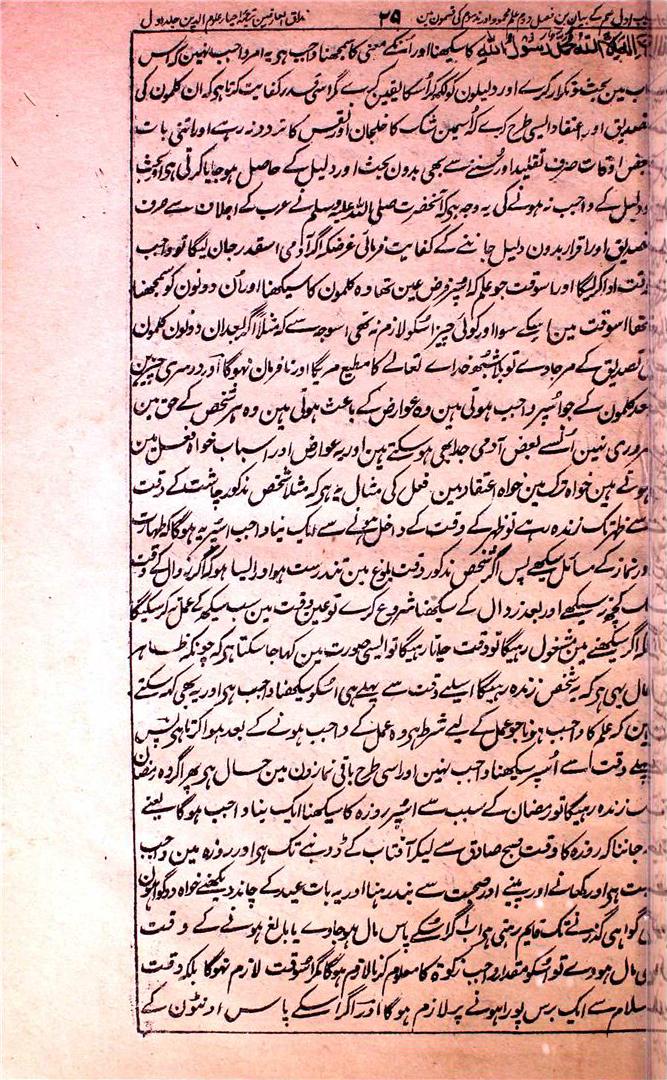 باب اول علم کے بیان مین فصل دوم علم محمود اور مذموم کی قسمون مین ۲۵ مذاق العارفین ترجمہ احیاء علوم الدین جلد اول
لا الہ الا اللہ محمد رسول اللہ کا سیکھنا اور اُنکے معنی کا سمجھنا واجب ہی یہ امر واجب نہین کہ اس
باب مین بحث و تکرار کرے اور دلیلون کو لکھکر اُسکا یقین کرے بلکہ اسی قدر کفایت کرتا ہی کہ ان کلمون کی
تصدیق اور اعتقاد ایسی طرح کرے کہ اُسمین شک کا خلجان اور نفس کا تردد نہ رہے اور اتنی بات
بعض اوقات صرف تقلید اور سُننے سے بھی بدون بحث اور دلیل کے حاصل ہو جایا کرتی ہی اور بحث
و دلیل کے واجب نہ ہونے کی یہ وجہ ہی کہ آنحضرت صلی اللہ علیہ وسلم نے عرب کے اجلاف سے صرف
تصدیق اور اقرار بدون دلیل جاننے کے کفایت فرمائی غرضکہ اگر آدمی اسقدر جان لیگا تو واجب
وقت ادا کریگا اور اسوقت جو علم کہ اُسپر فرض عین تھا وہ کلمون کا سیکھنا اور اُن دونون کو سمجھنا
تھا اسوقت مین اسکے سوا اور کوئی چیز اُسکو لازم نہ تھی اسوجہ سے کہ مثلاً اگر بعد ان دونون کلمون
کی تصدیق کے مرجاوے تو بلا شبہہ خداے تعالے کا مطیع مریگا اور نافرمان نہوگا اور دوسری چیزین
بعد کلمون کے جو اُسپر واجب ہوتی ہین وہ عوارض کے باعث ہوتی ہین وہ ہر شخص کے حق مین
ضروری نہین اُنسے بعض آدمی جدا بھی ہو سکتے ہین اور یہ عوارض اور اسباب خواہ فعل مین
ہوتے ہین خواہ ترک مین خواہ اعتقاد مین فعل کی مثال یہ ہی کہ مثلاً شخص مذکور چاشت کے وقت
سے ظہر تک زندہ رہے تو ظہر کے وقت کے داخل ہونے سے ایک نیا واجب اسپر یہ ہوگا کہ طہارت
اور نماز کے مسائل سیکھے پس اگر شخص مذکور وقت بلوغ مین تندرست ہو اور ایسا ہو کہ اگر زوال کے وقت
تک کچھ نہ سیکھے اور بعد زوال کے سیکھنا شروع کرے تو عین وقت مین سب سیکھ کے عمل نہ کر سکیگا
بلکہ اگر سیکھنے مین مشغول رہیگا تو وقت جاتا رہیگا تو ایسی صورت مین کہا جا سکتا ہی کہ چونکہ ظاہر
حال یہی ہی کہ یہ شخص زندہ رہیگا اسلیے وقت سے پہلے ہی اُسکو سیکھنا واجب ہی اور یہ بھی کہہ سکتے
ہین کہ علم کا واجب ہونا جو عمل کے لیے شرط ہی وہ عمل کے واجب ہونے کے بعد ہوا کرتا ہی پس
پہلے وقت سے اُسپر سیکھنا واجب نہین اور اسی طرح باقی نمازون مین حال ہی پھر اگر وہ رمضان
تک زندہ رہیگا تو رمضان کے سبب سے اُسپر روزہ کا سیکھنا ایک نیا واجب ہوگا یعنے
یہ جاننا کہ روزہ کا وقت صبح صادق سے لیکر آفتاب کے ڈوبنے تک ہی اور روزہ مین واجب
نیت ہی اور کھانے اور پینے اور صحبت سے بند رہنا اور یہ بات عید کے چاند دیکھنے خواہ دو گواہون
کی گواہی گذرنے تک قایم رہتی ہی اب اگر اُسکے پاس مال ہو جاوے یا بالغ ہونے کے وقت
ہی مال ہووے تو اُسکو مقدار واجب زکوۃ کا معلوم کرنا لازم ہوگا مگر اُسوقت لازم نہوگا بلکہ وقت
اسلام سے ایک برس پورا ہونے پر لازم ہوگا اور اگر اسکے پاس اونٹون کے